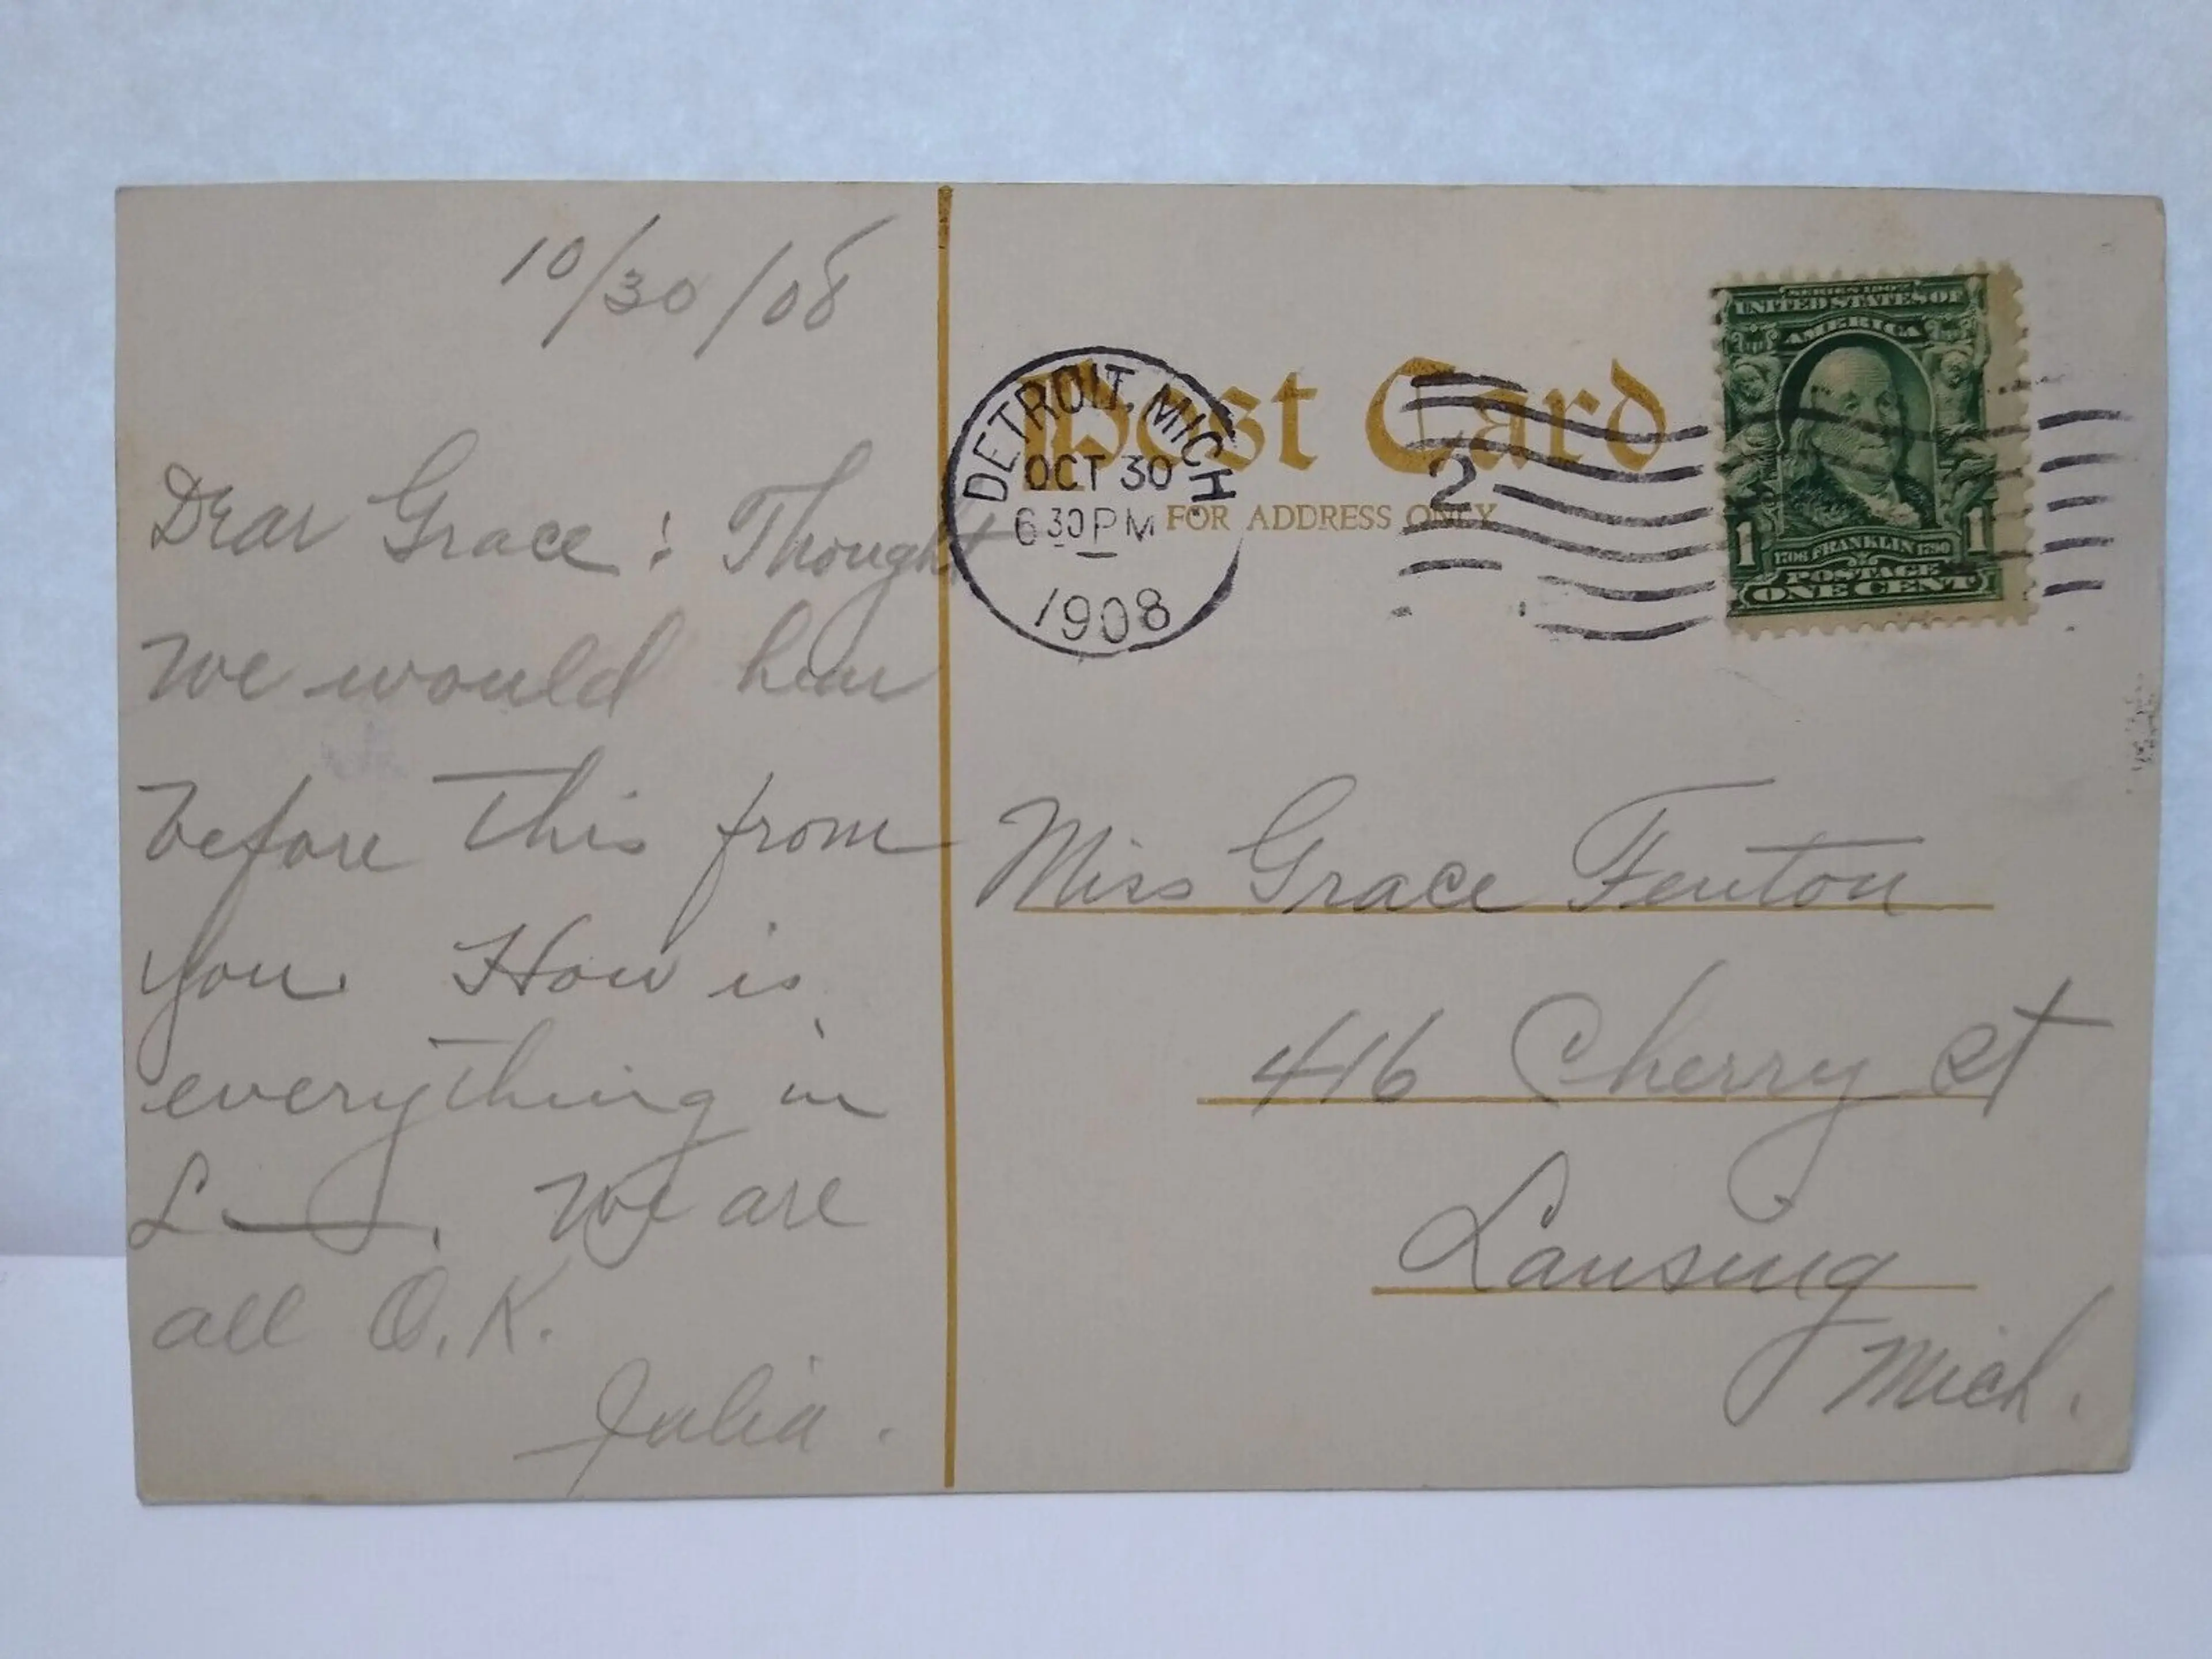 10/30/08
Dear Grace: Thought
we would hear
before this from
you. How is
everything in
L——. We are
all O.K.
Julia.
Post Card
FOR ADDRESS ONLY
DETROIT, MICH.
OCT 30
6 30 PM
1908
2
SERIES 1902
UNITED STATES OF
AMERICA
1706 FRANKLIN 1790
1 1
POSTAGE
ONE CENT
Miss Grace Fenton
416 Cherry St
Lansing
Mich.